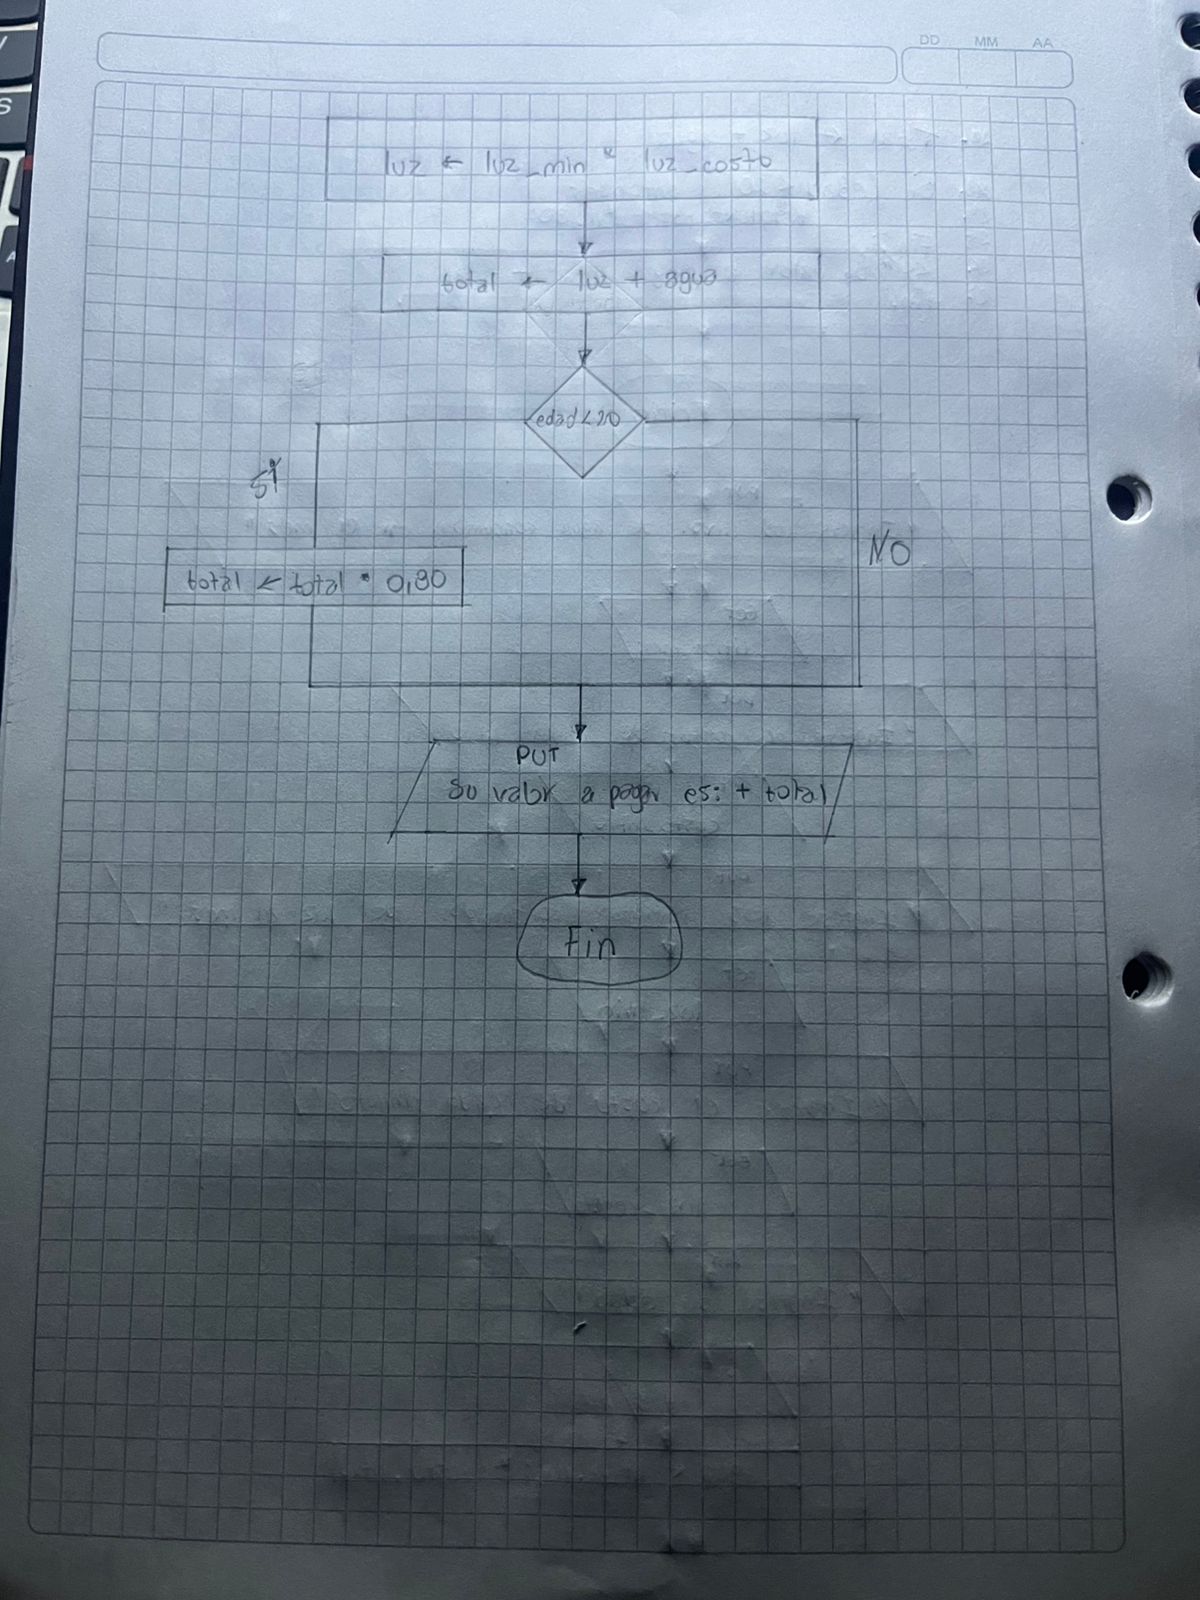 DD MM AA
luz ← luz_min * luz_costo
total ← luz + agua
edad < 20
Sí
NO
total ← total * 0,80
PUT
Su valor a pagar es: + total
Fin